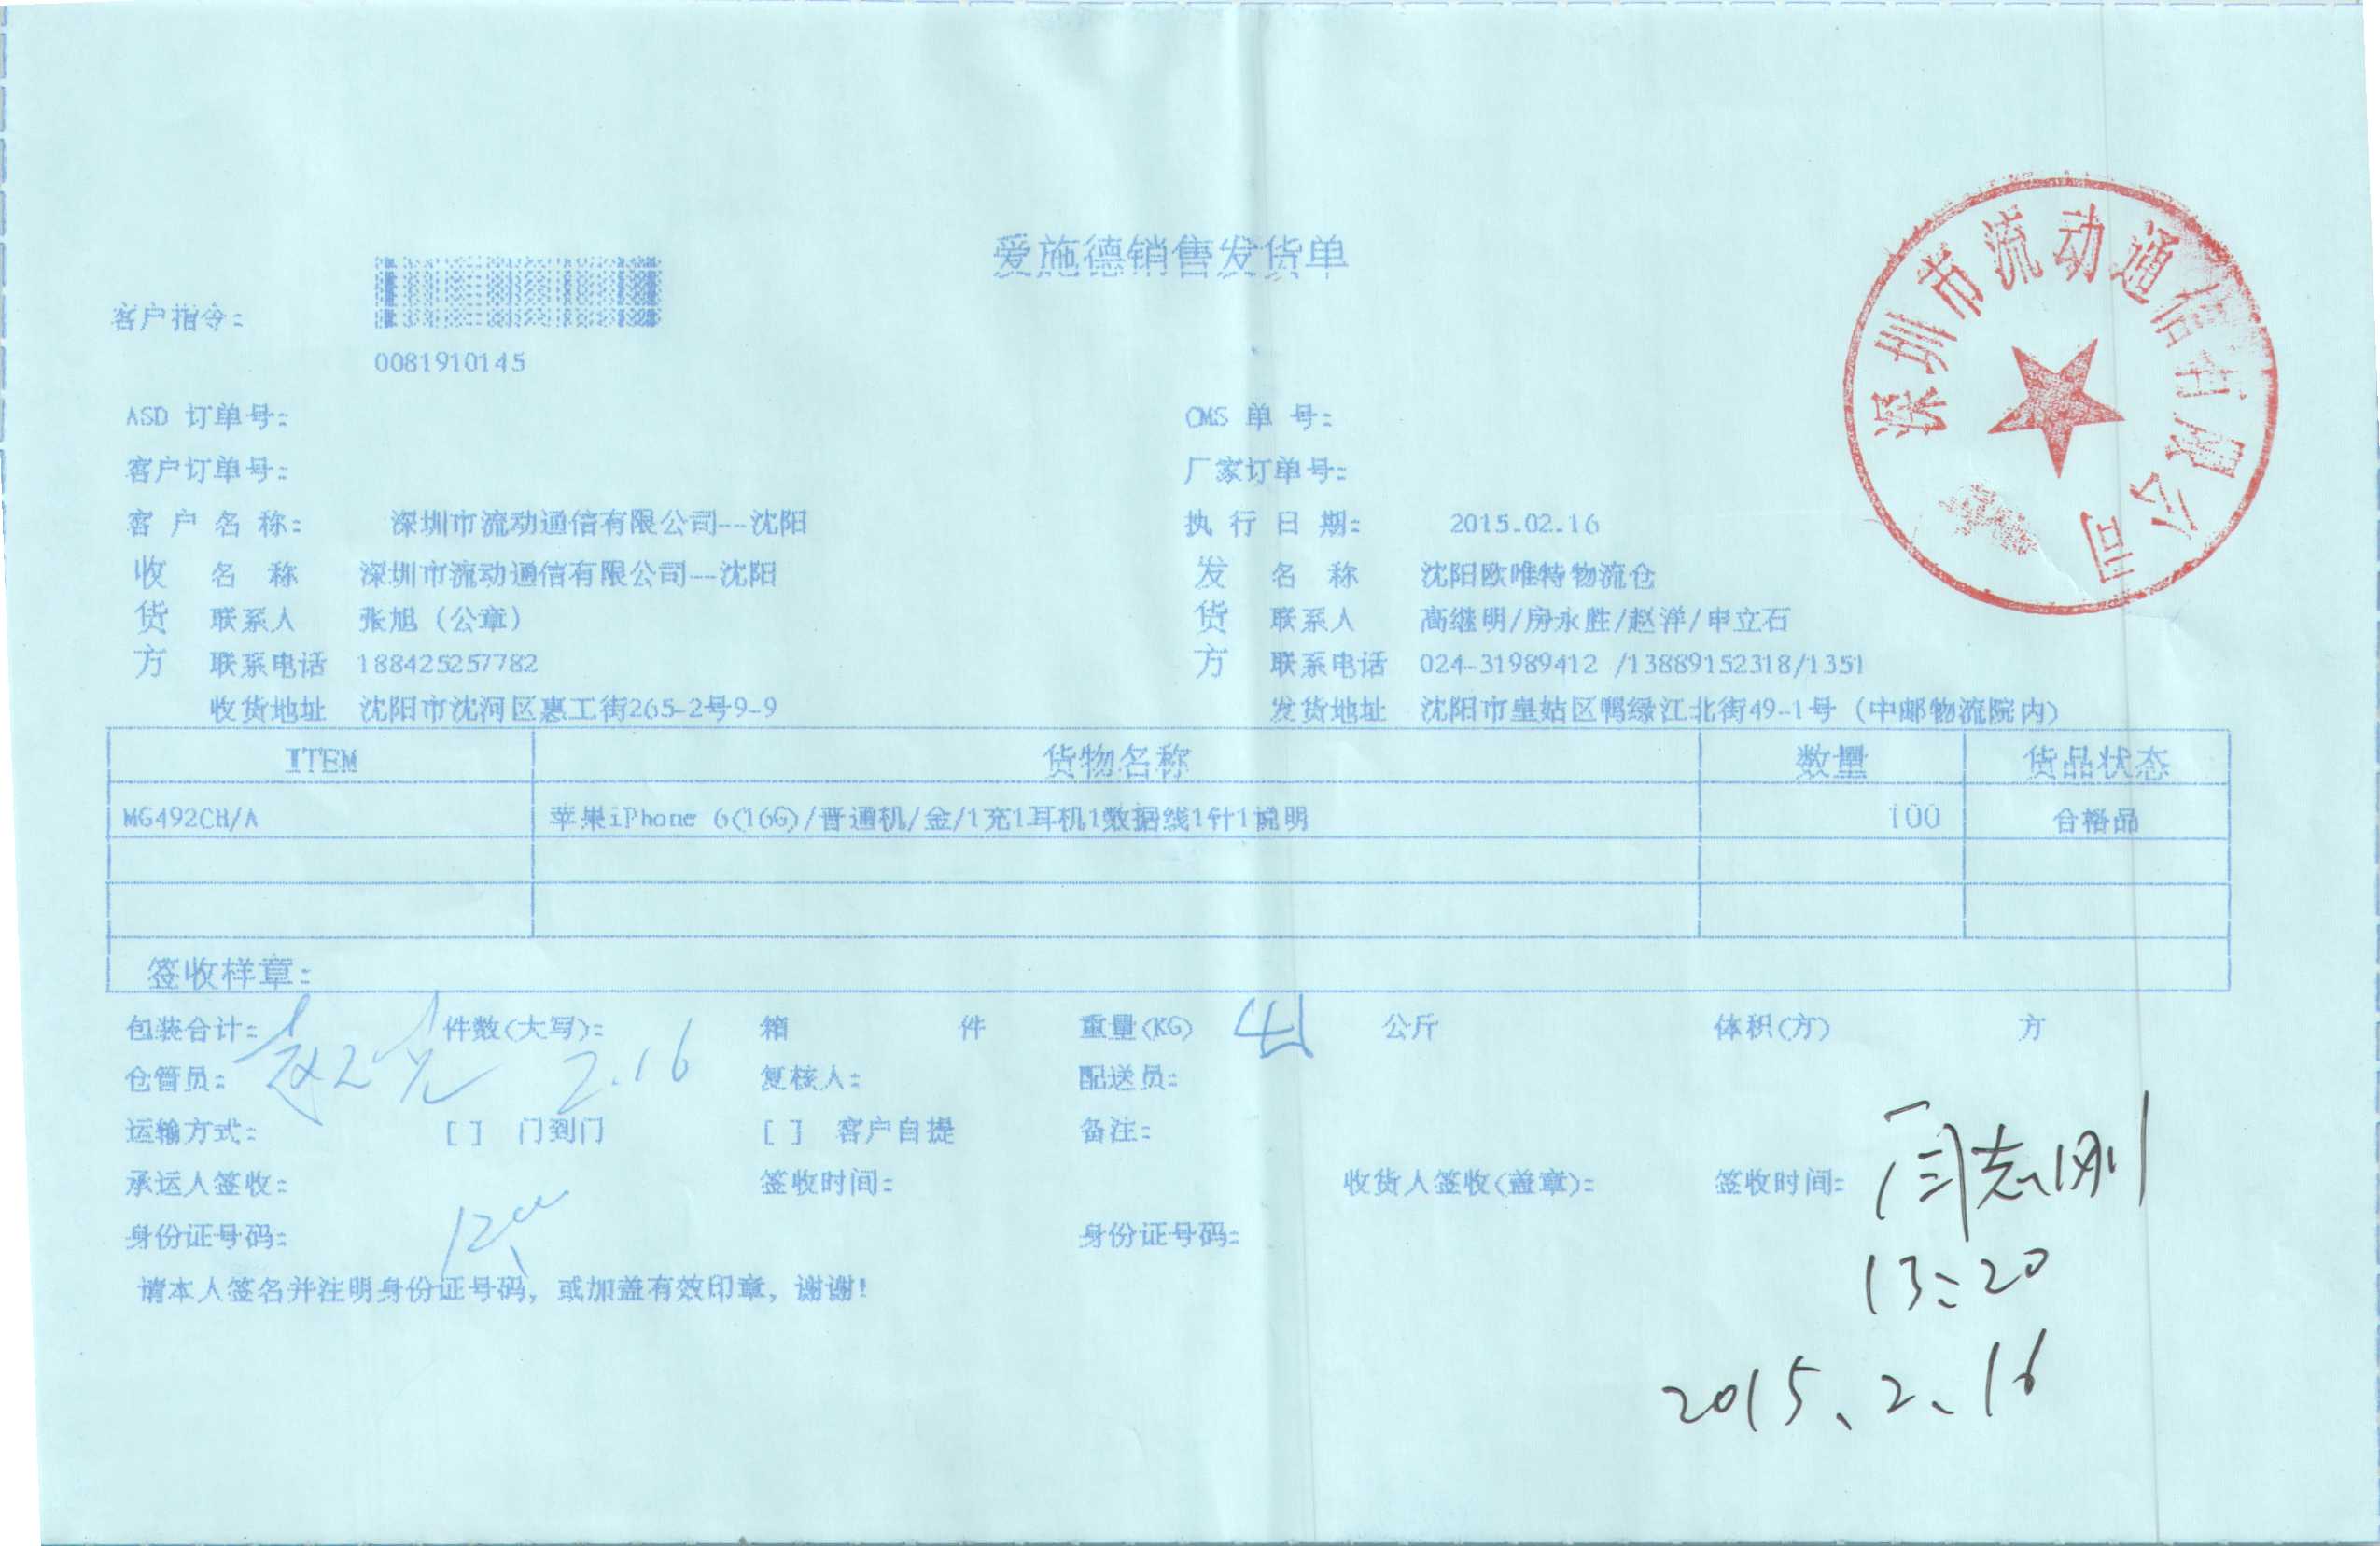 爱施德销售发货单
深圳市流动通信有限公司
客户指令:
0081910145
ASD 订单号: OMS 单 号:
客户订单号: 厂家订单号:
客 户 名 称: 深圳市流动通信有限公司--沈阳 执 行 日 期: 2015.02.16
收 名 称 深圳市流动通信有限公司--沈阳 发 名 称 沈阳欧唯特物流仓
货 联系人 张旭 (公章) 货 联系人 高继明/房永胜/赵洋/申立石
方 联系电话 188425257782 方 联系电话 024-31989412 /13889152318/1351
收货地址 沈阳市沈河区惠工街265-2号9-9 发货地址 沈阳市皇姑区鸭绿江北街49-1号 (中邮物流院内)
ITEM 货物名称 数量 货品状态
MG492CH/A 苹果iPhone 6(16G)/普通机/金/1充1耳机1数据线1针1说明 100 合格品
签收样章:
包装合计: 件数(大写): 箱 件 重量(KG) 公斤 体积(方) 方
仓管员: 2.16 复核人: 配送员:
运输方式: [ ] 门到门 [ ] 客户自提 备注:
承运人签收: 签收时间: 收货人签收(盖章): 签收时间: 闫志刚
身份证号码: 身份证号码: 13:20
请本人签名并注明身份证号码, 或加盖有效印章, 谢谢!
2015、2、16